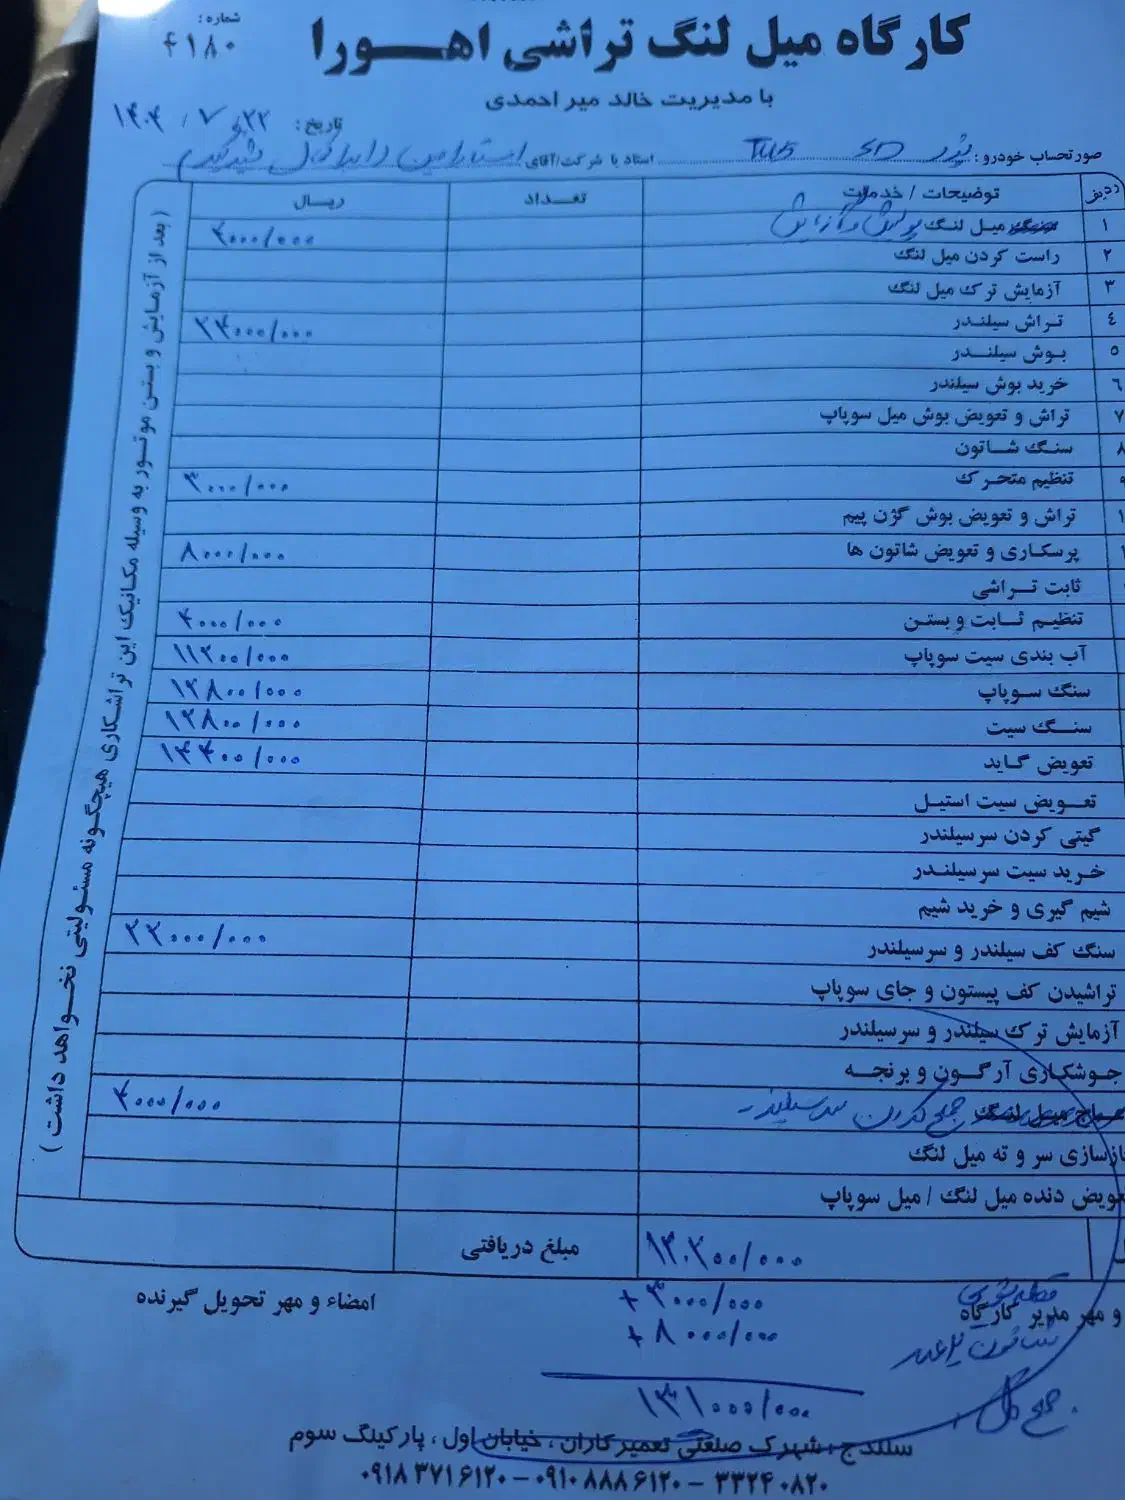 شماره: ۴۱۸۰
کارگاه میل لنگ تراشی اهورا
با مدیریت خالد میر احمدی
تاریخ: ۱۴۰۴/۷/۲۲
صورتحساب خودرو: پژو SD TU5 استاد با شرکت/آقای استاد رامین
ردیف توضیحات / خدمات تعداد ریال
۱ سنگ میل لنگ پولیش ۳۰۰۰/۰۰۰
۲ راست کردن میل لنگ
۳ آزمایش ترک میل لنگ
۴ تراش سیلندر ۲۴۰۰۰/۰۰۰
۵ بوش سیلندر
۶ خرید بوش سیلندر
۷ تراش و تعویض بوش میل سوپاپ
۸ سنگ شاتون
۹ تنظیم متحرک ۳۰۰۰/۰۰۰
تراش و تعویض بوش گژن پیم
پرسکاری و تعویض شاتون ها ۸۰۰۰/۰۰۰
ثابت تراشی
تنظیم ثابت و بستن ۴۰۰۰/۰۰۰
آب بندی سیت سوپاپ ۱۱۲۰۰/۰۰۰
سنگ سوپاپ ۱۲۸۰۰/۰۰۰
سنگ سیت ۱۲۸۰۰/۰۰۰
تعویض گاید ۱۴۴۰۰/۰۰۰
تعویض سیت استیل
گیتی کردن سرسیلندر
خرید سیت سرسیلندر
شیم گیری و خرید شیم
سنگ کف سیلندر و سرسیلندر ۲۲۰۰۰/۰۰۰
تراشیدن کف پیستون و جای سوپاپ
آزمایش ترک سیلندر و سرسیلندر
جوشکاری آرگون و برنجه
میل لنگ جمع کردن سرسیلندر ۴۰۰۰/۰۰۰
بازسازی سر و ته میل لنگ
تعویض دنده میل لنگ / میل سوپاپ
(بعد از آزمایش و بستن موتور به وسیله مکانیک این تراشکاری هیچگونه مسئولیتی نخواهد داشت)
۱۲۰۲۰۰/۰۰۰ مبلغ دریافتی
و مهر مدیر کارگاه امضاء و مهر تحویل گیرنده
+ ۳۰۰۰/۰۰۰
شاتون + ۸۰۰۰/۰۰۰
جمع کل ۱۳۱۰۰۰/۰۰۰
سنندج: شهرک صنعتی تعمیرکاران، خیابان اول، پارکینگ سوم
۰۹۱۸ ۳۷۱ ۶۱۲۰ - ۰۹۱۰ ۸۸۸ ۶۱۲۰ - ۳۳۲۴۰۸۲۰